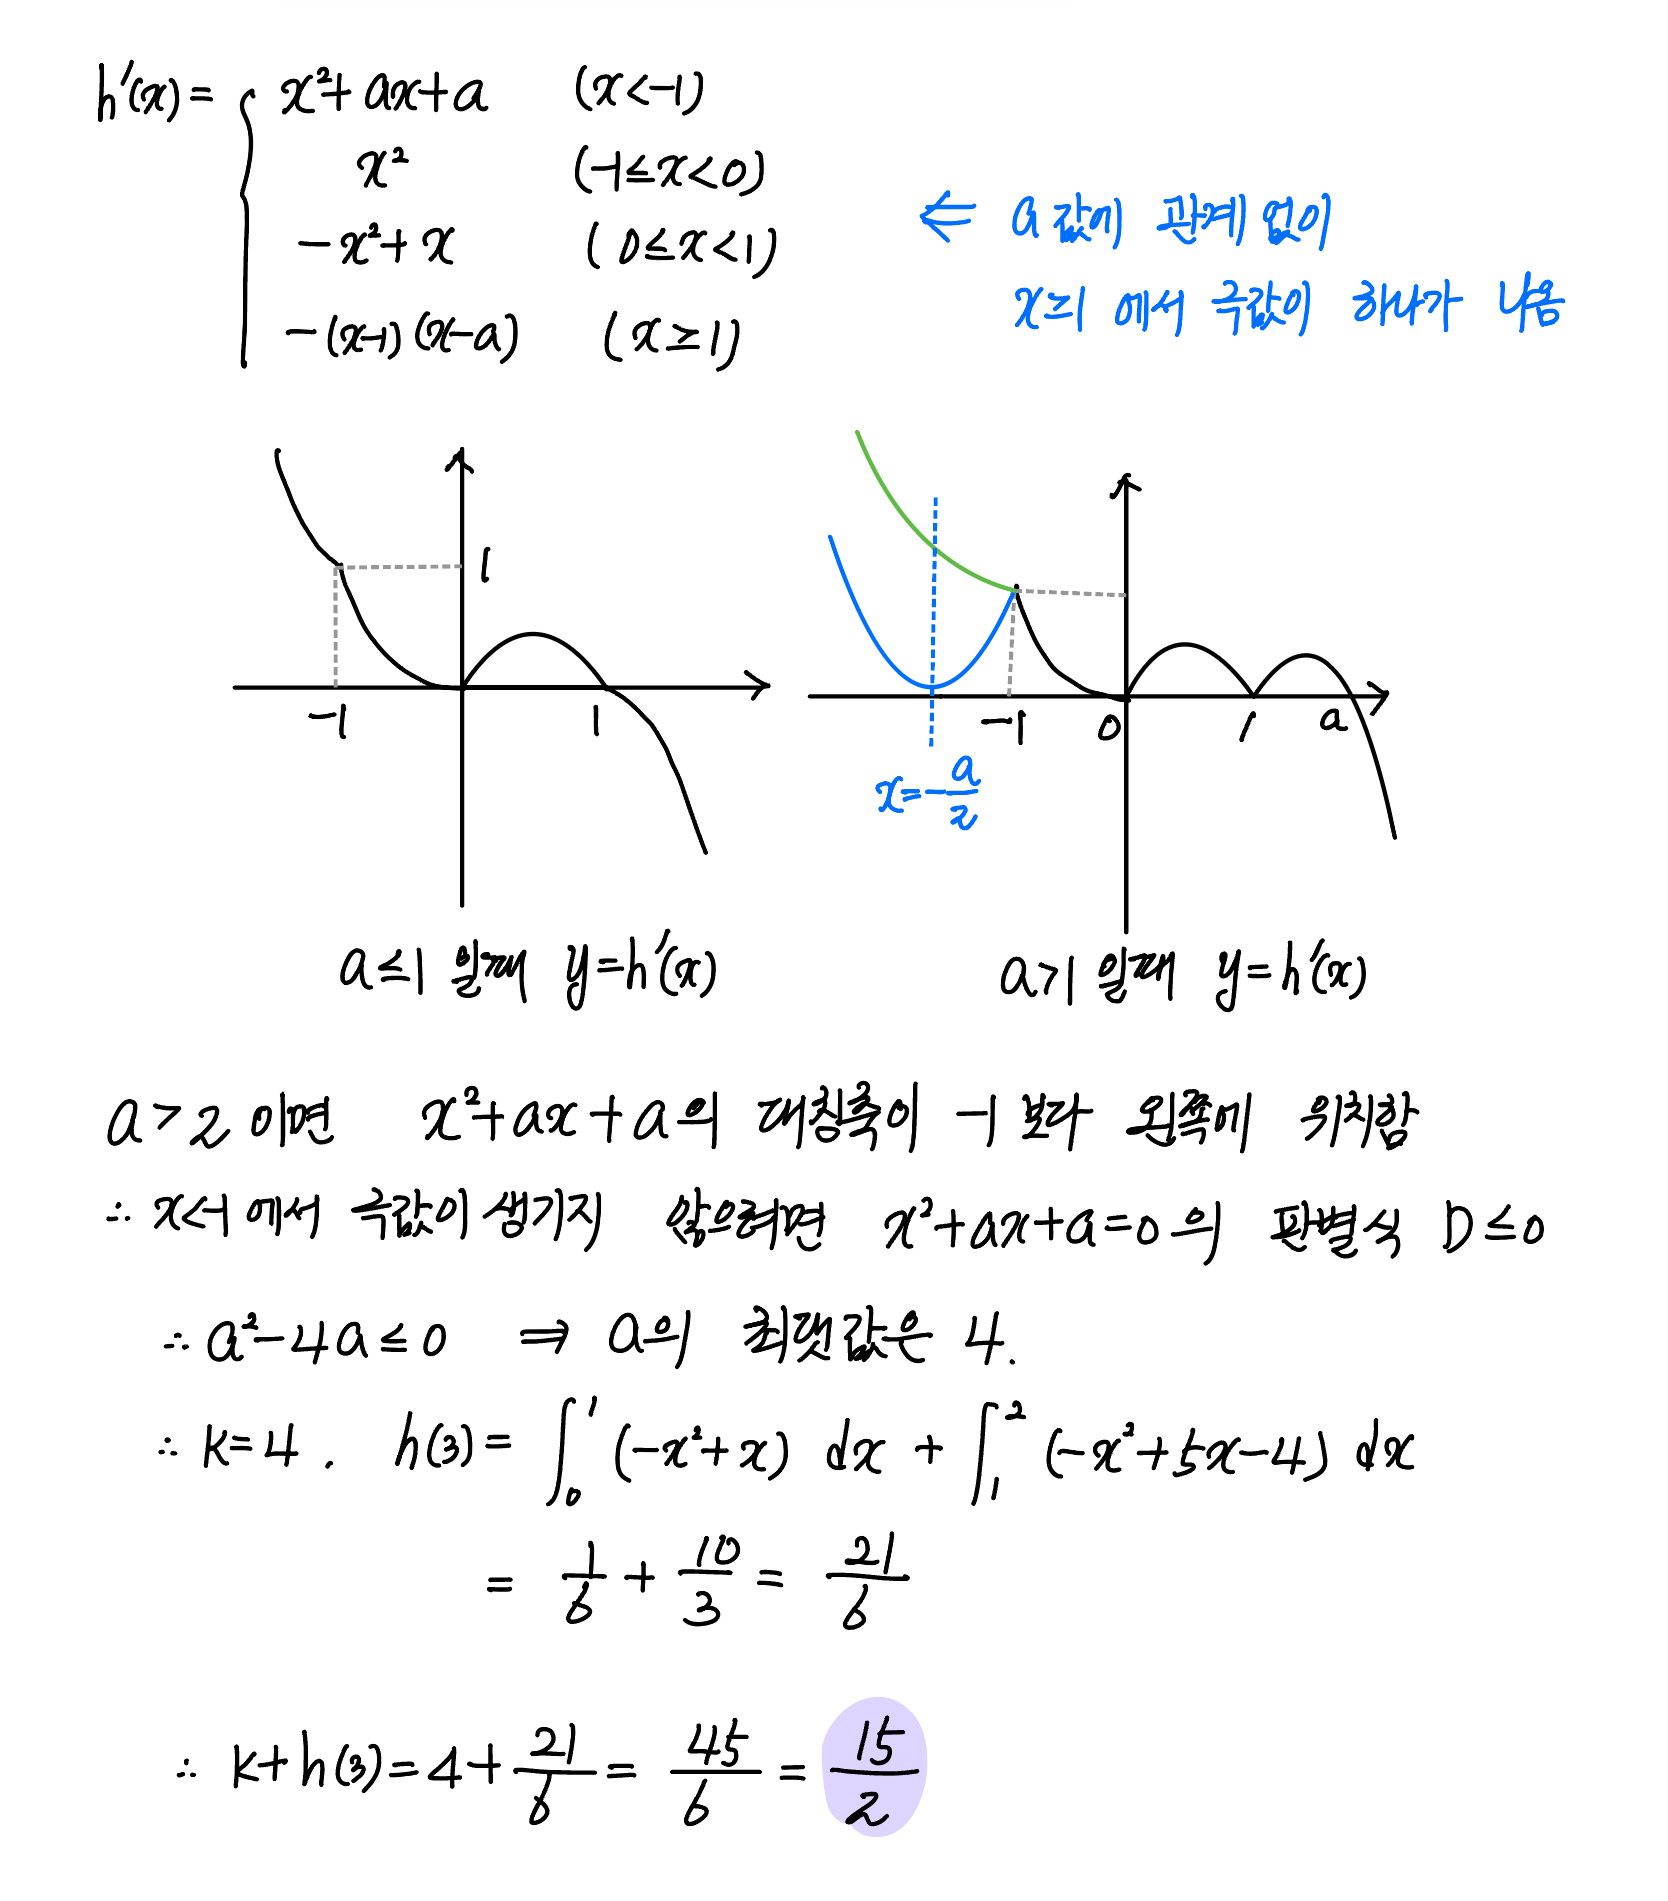 h'(x) = { x²+ax+a (x<-1)
x² (-1≤x<0)
-x²+x (0≤x<1)
-(x-1)(x-a) (x≥1)
⇐ a값에 관계없이
x≥1 에서 극값이 하나가 나옴
1
-1
1
-1
0
1
a
x=-a/2
a≤1 일때 y=h'(x)
a>1 일때 y=h'(x)
a>2 이면 x²+ax+a의 대칭축이 -1보다 왼쪽에 위치함
∴ x<-1에서 극값이 생기지 않으려면 x²+ax+a=0의 판별식 D≤0
∴ a²-4a≤0 ⇒ a의 최댓값은 4.
∴ k=4. h(3)= ∫₀¹ (-x²+x) dx + ∫₁² (-x²+5x-4) dx
= 1/6 + 10/3 = 21/6
∴ k+h(3)=4+21/6 = 45/6 = 15/2